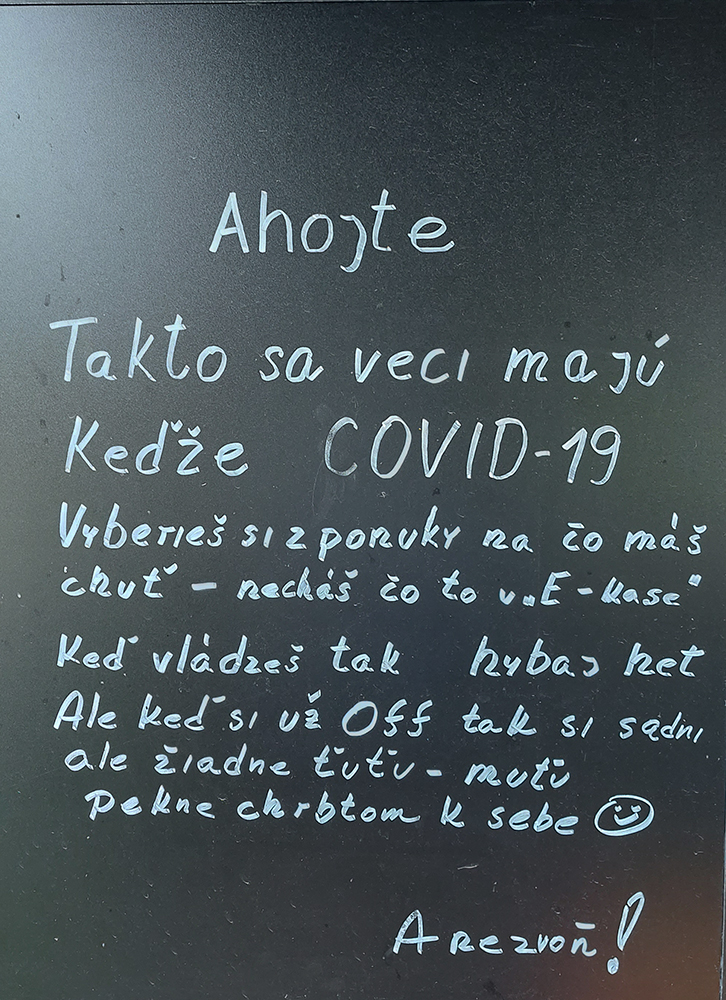 Ahojte
Takto sa veci majú
Keďže COVID-19
Vyberieš si z ponuky na čo máš
chuť - necháš čo to v „E-kase"
Keď vládzeš tak hybaj het
Ale keď si už Off tak si sadni
ale žiadne ťuťu - muťu
Pekne chrbtom k sebe
A nezvoň!